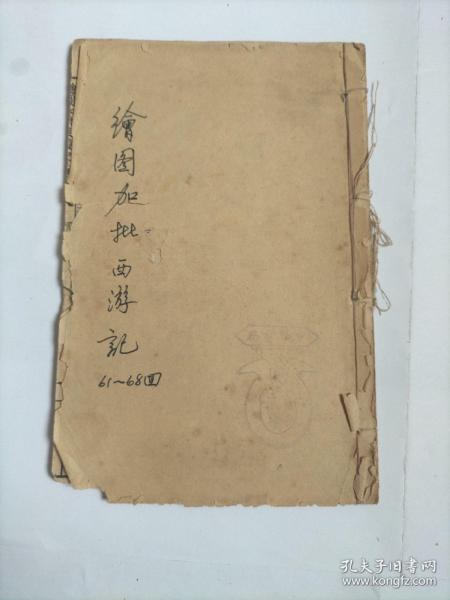 繪图加批西游記
61~68回
孔夫子旧书网
www.kongfz.com